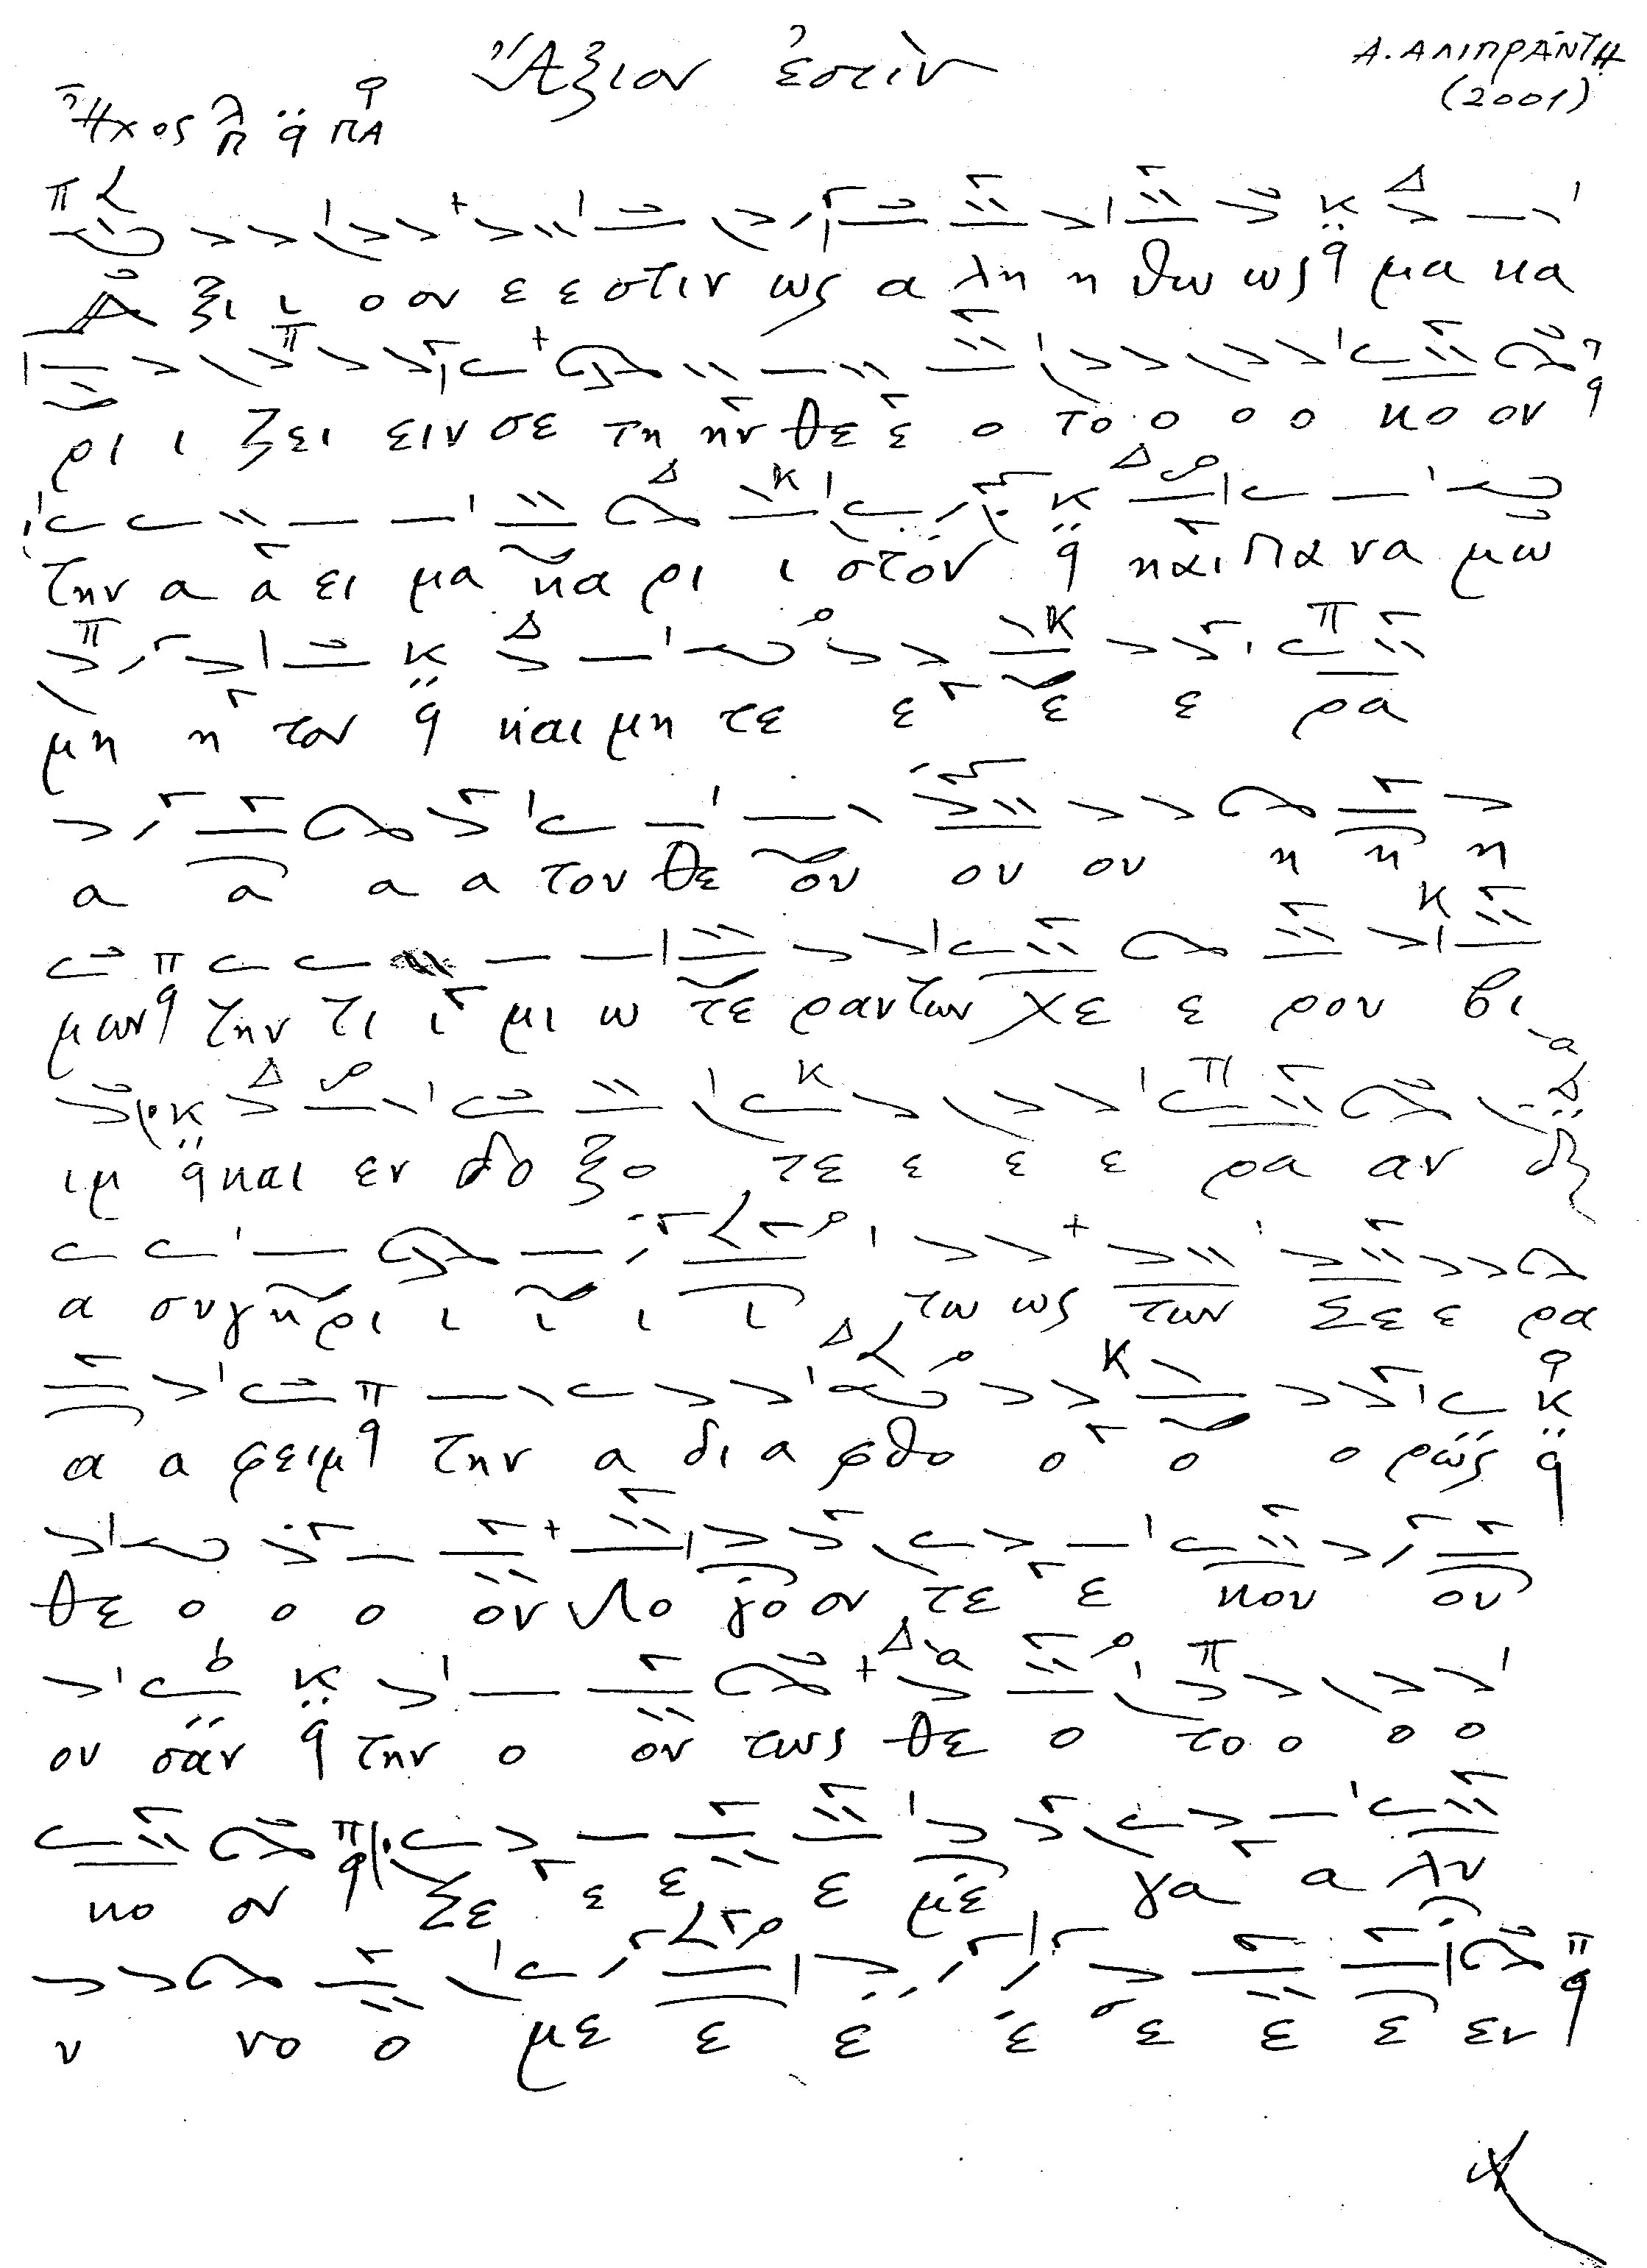 Ἄξιον ἐστὶν
Α. ΑΛΙΠΡΑΝΤΗ
(2001)
Ἦχος λ π q ΠΑ
Α ξι ι ο ον ε ε στιν ως α λη η θω ως q μα κα
ρι ι ζει ειν σε τη ην θε ε ο το ο ο ο κο ον q
την α α ει μα κα ρι ι στον q και Πα να μω
μη η τον q και μη τε ε ε ε ρα
α α α α τον θε ου ου ου η η η
μων q την τι ι μι ω τε ραν των χε ε ρου βι
ιμ q και εν δο ξο τε ε ε ε ρα αν
α συγκρι ι ι ι ι τω ως των Σε ε ε ρα
α α φειμ q την α δι α φθο ο ο ο ρως q
θε ο ο ο ον Λο γο ον τε ε κου ου
ου σαν q την ο ον τως θε ο το ο ο ο
κο ον q Σε ε ε ε με γα α λυ
υ νο ο με ε ε ε ε ε ε εν q